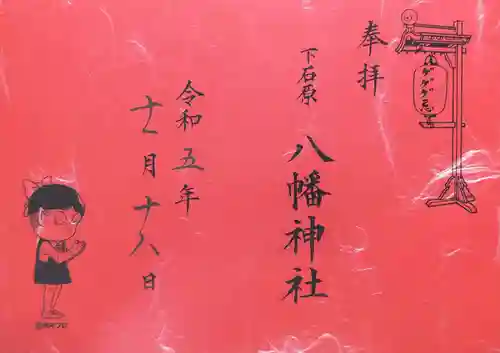 奉拝
ゲゲゲ忌
下石原
八幡神社
令和五年
十一月十八日
©水木プロ